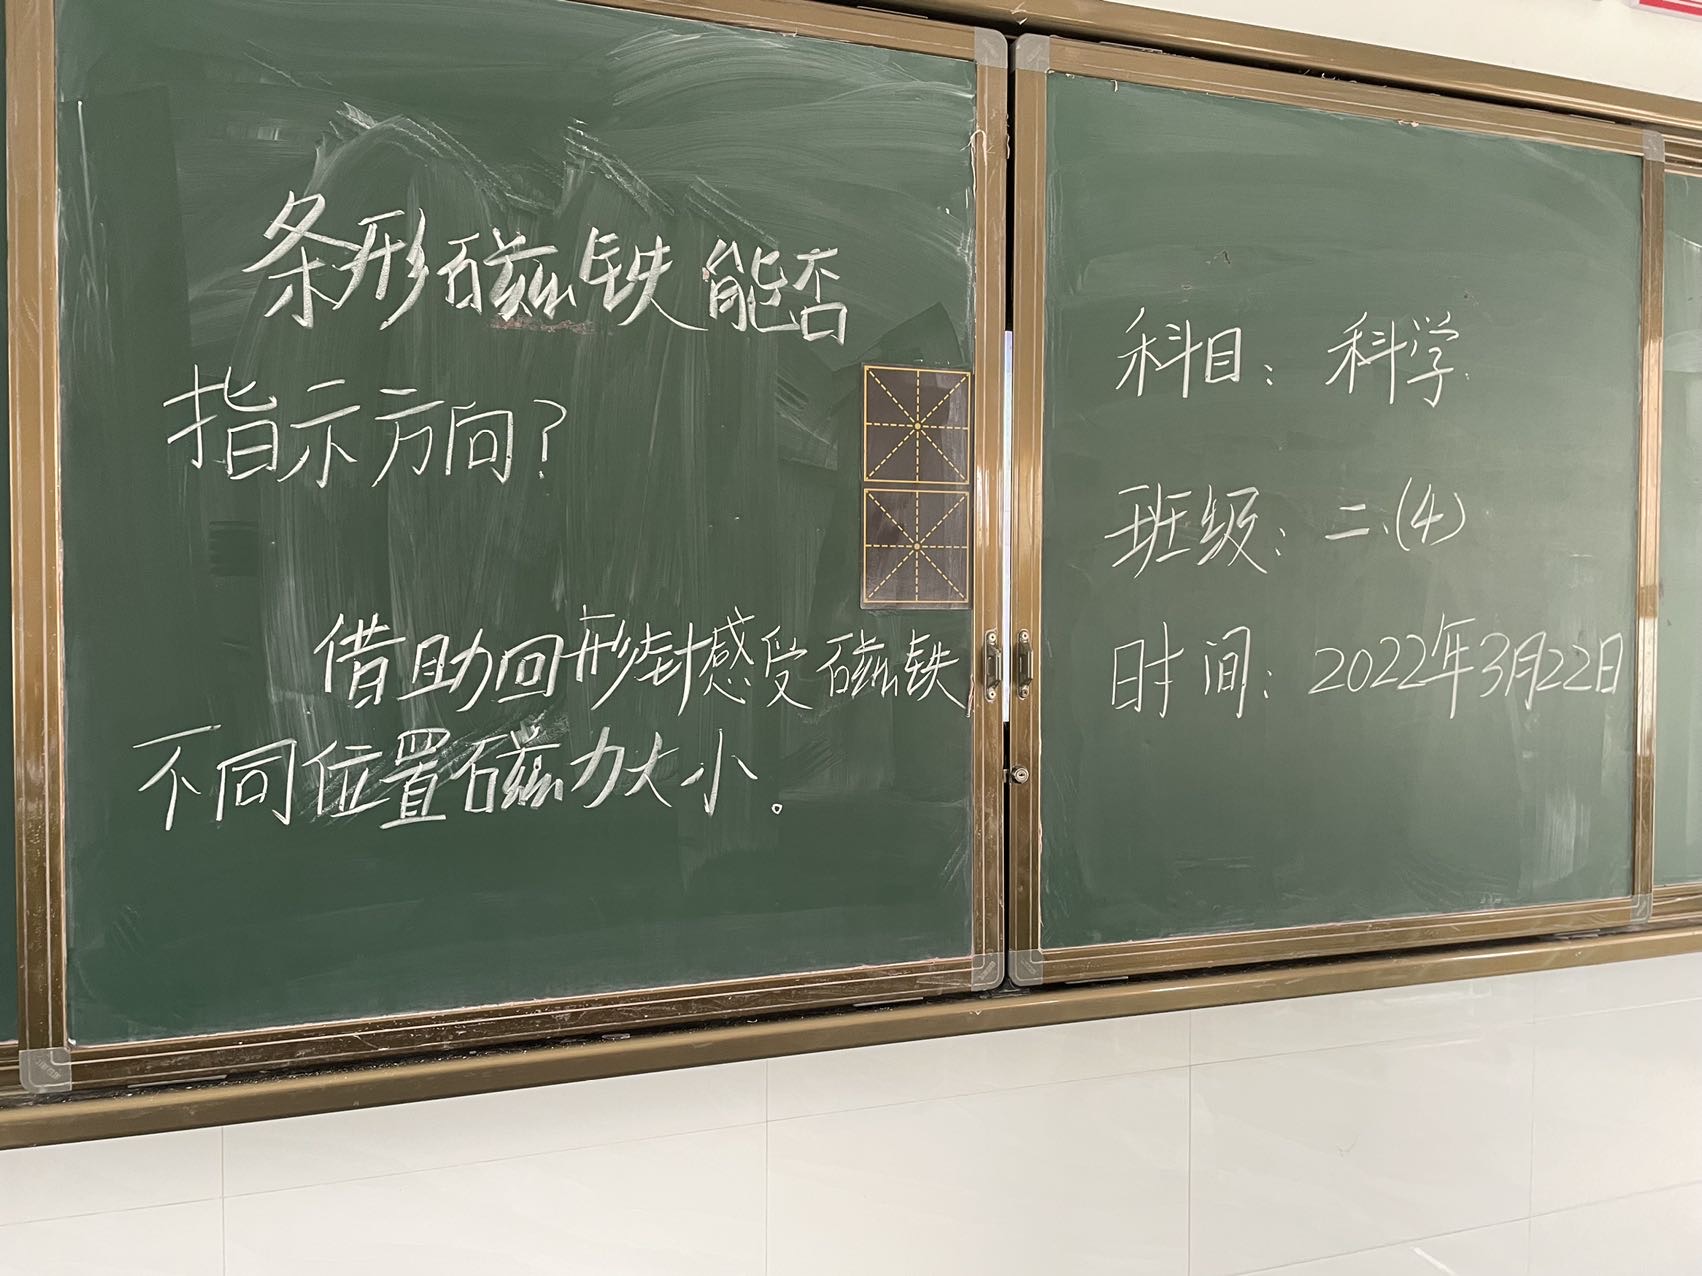 条形磁铁能否
指示方向?
借助回形针感受磁铁
不同位置磁力大小。
科目：科学
班级：二.(4)
时间：2022年3月22日